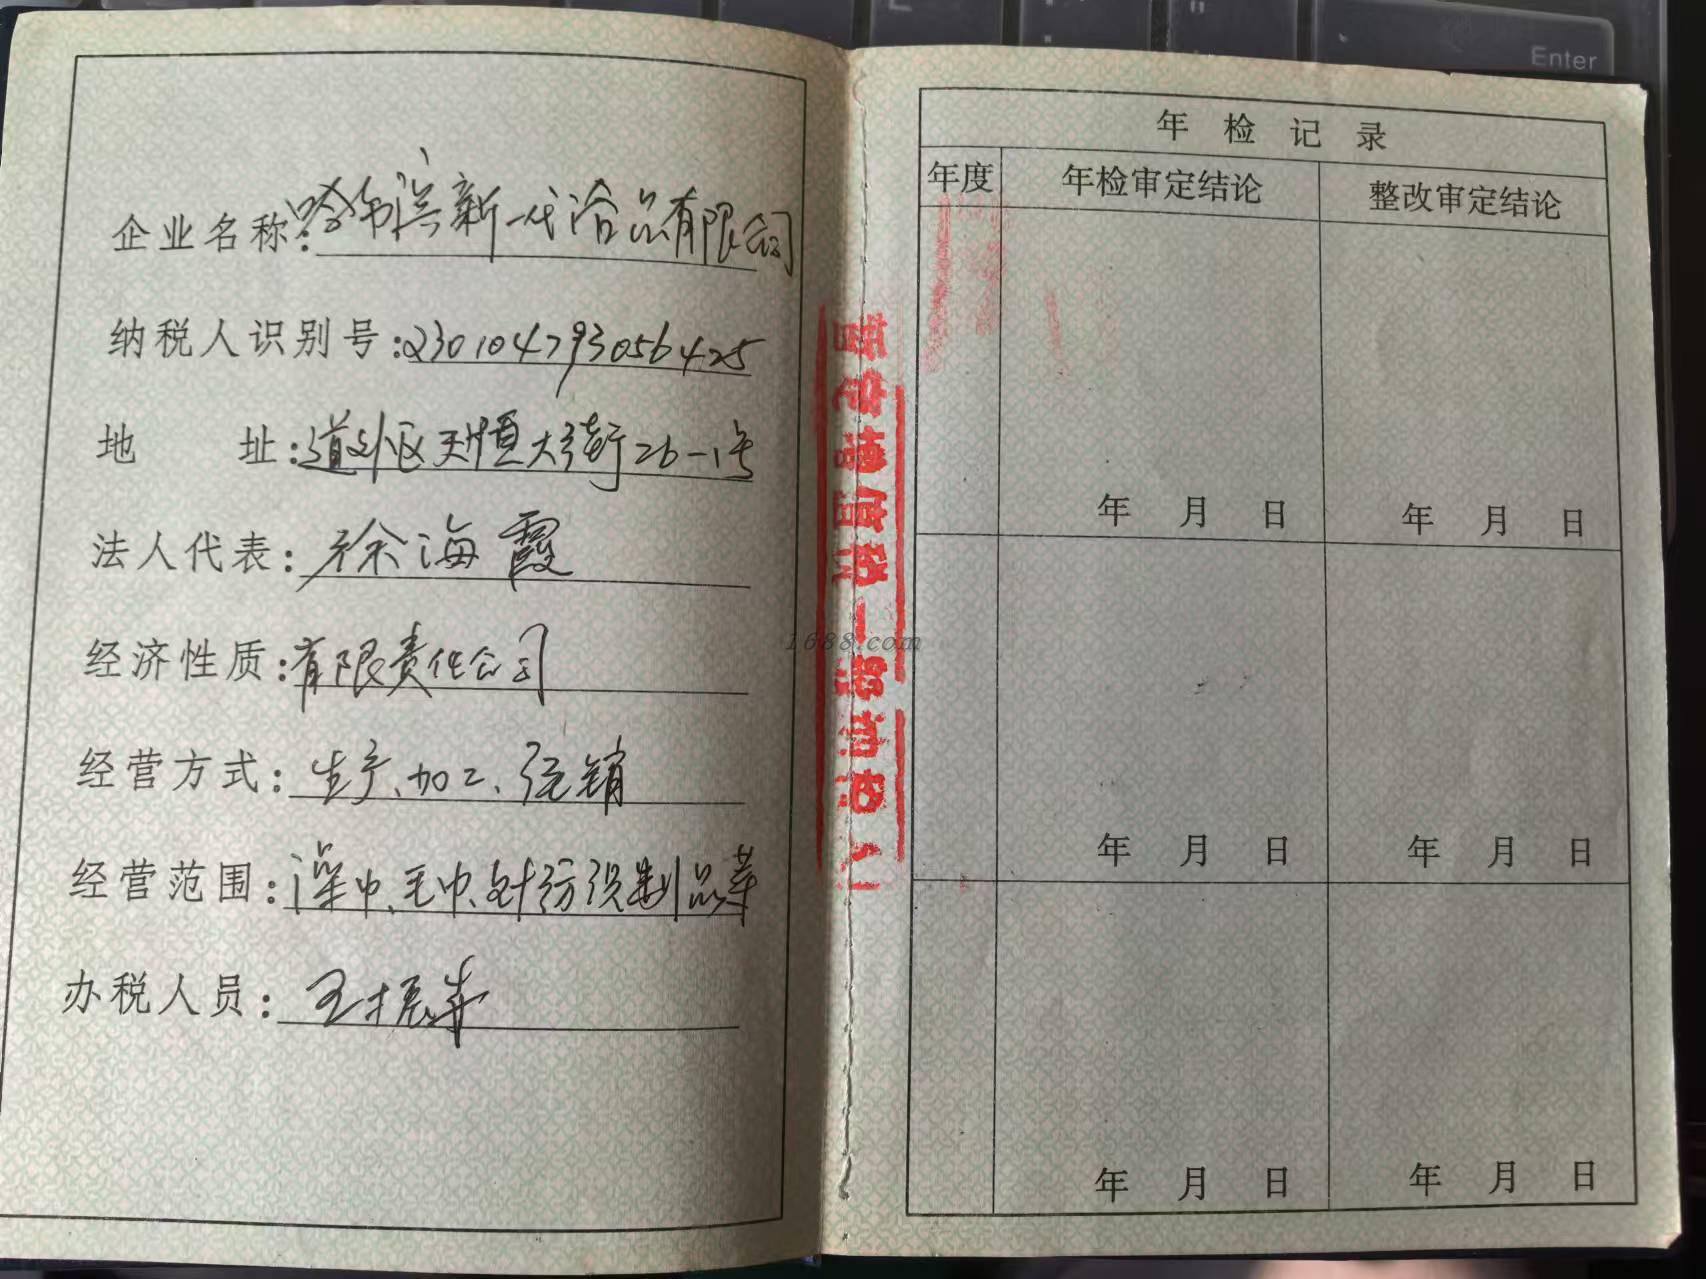 企业名称:哈尔滨新一代浴品有限公司
纳税人识别号:230104793056425
地 址:道外区天恒大街26-1号
法人代表:徐海霞
经济性质:有限责任公司
经营方式:生产、加工、经销
经营范围:澡巾、毛巾、针纺织制品等
办税人员:王振华
1688.com
年检记录
年度 年检审定结论 整改审定结论
年 月 日 年 月 日
年 月 日 年 月 日
年 月 日 年 月 日
Enter